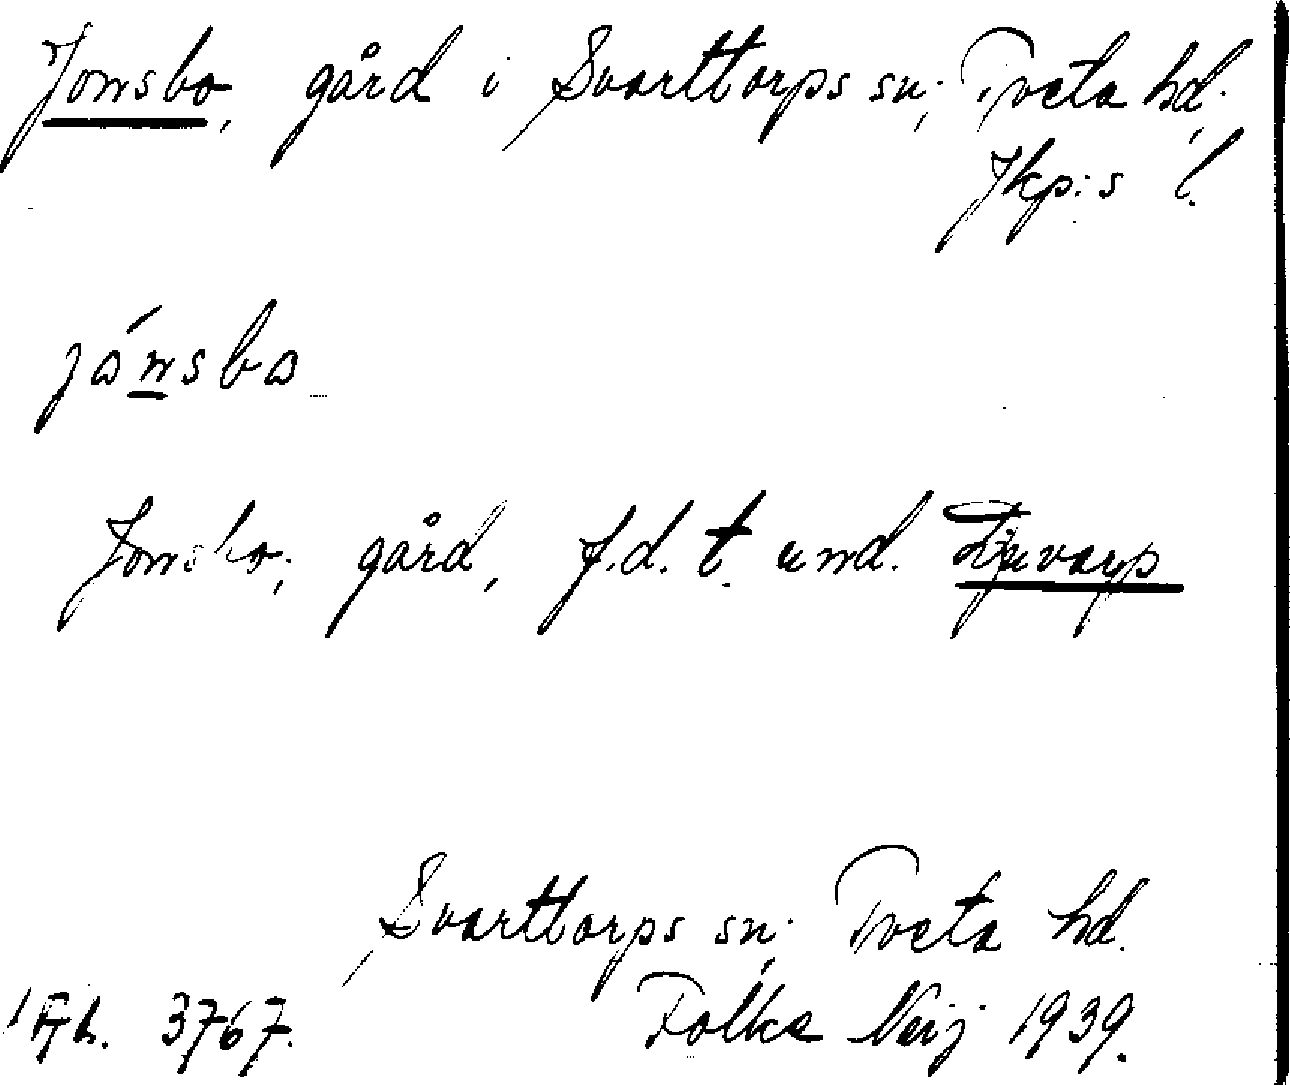 Jonsbo, gård i Svarttorps sn; Tveta hd.
Jkp:s l.
jónsbo
Jonsbo; gård, f.d. t. und. Djuvarp
Svarttorps sn; Tveta hd.
3767. Folke Neij 1939.